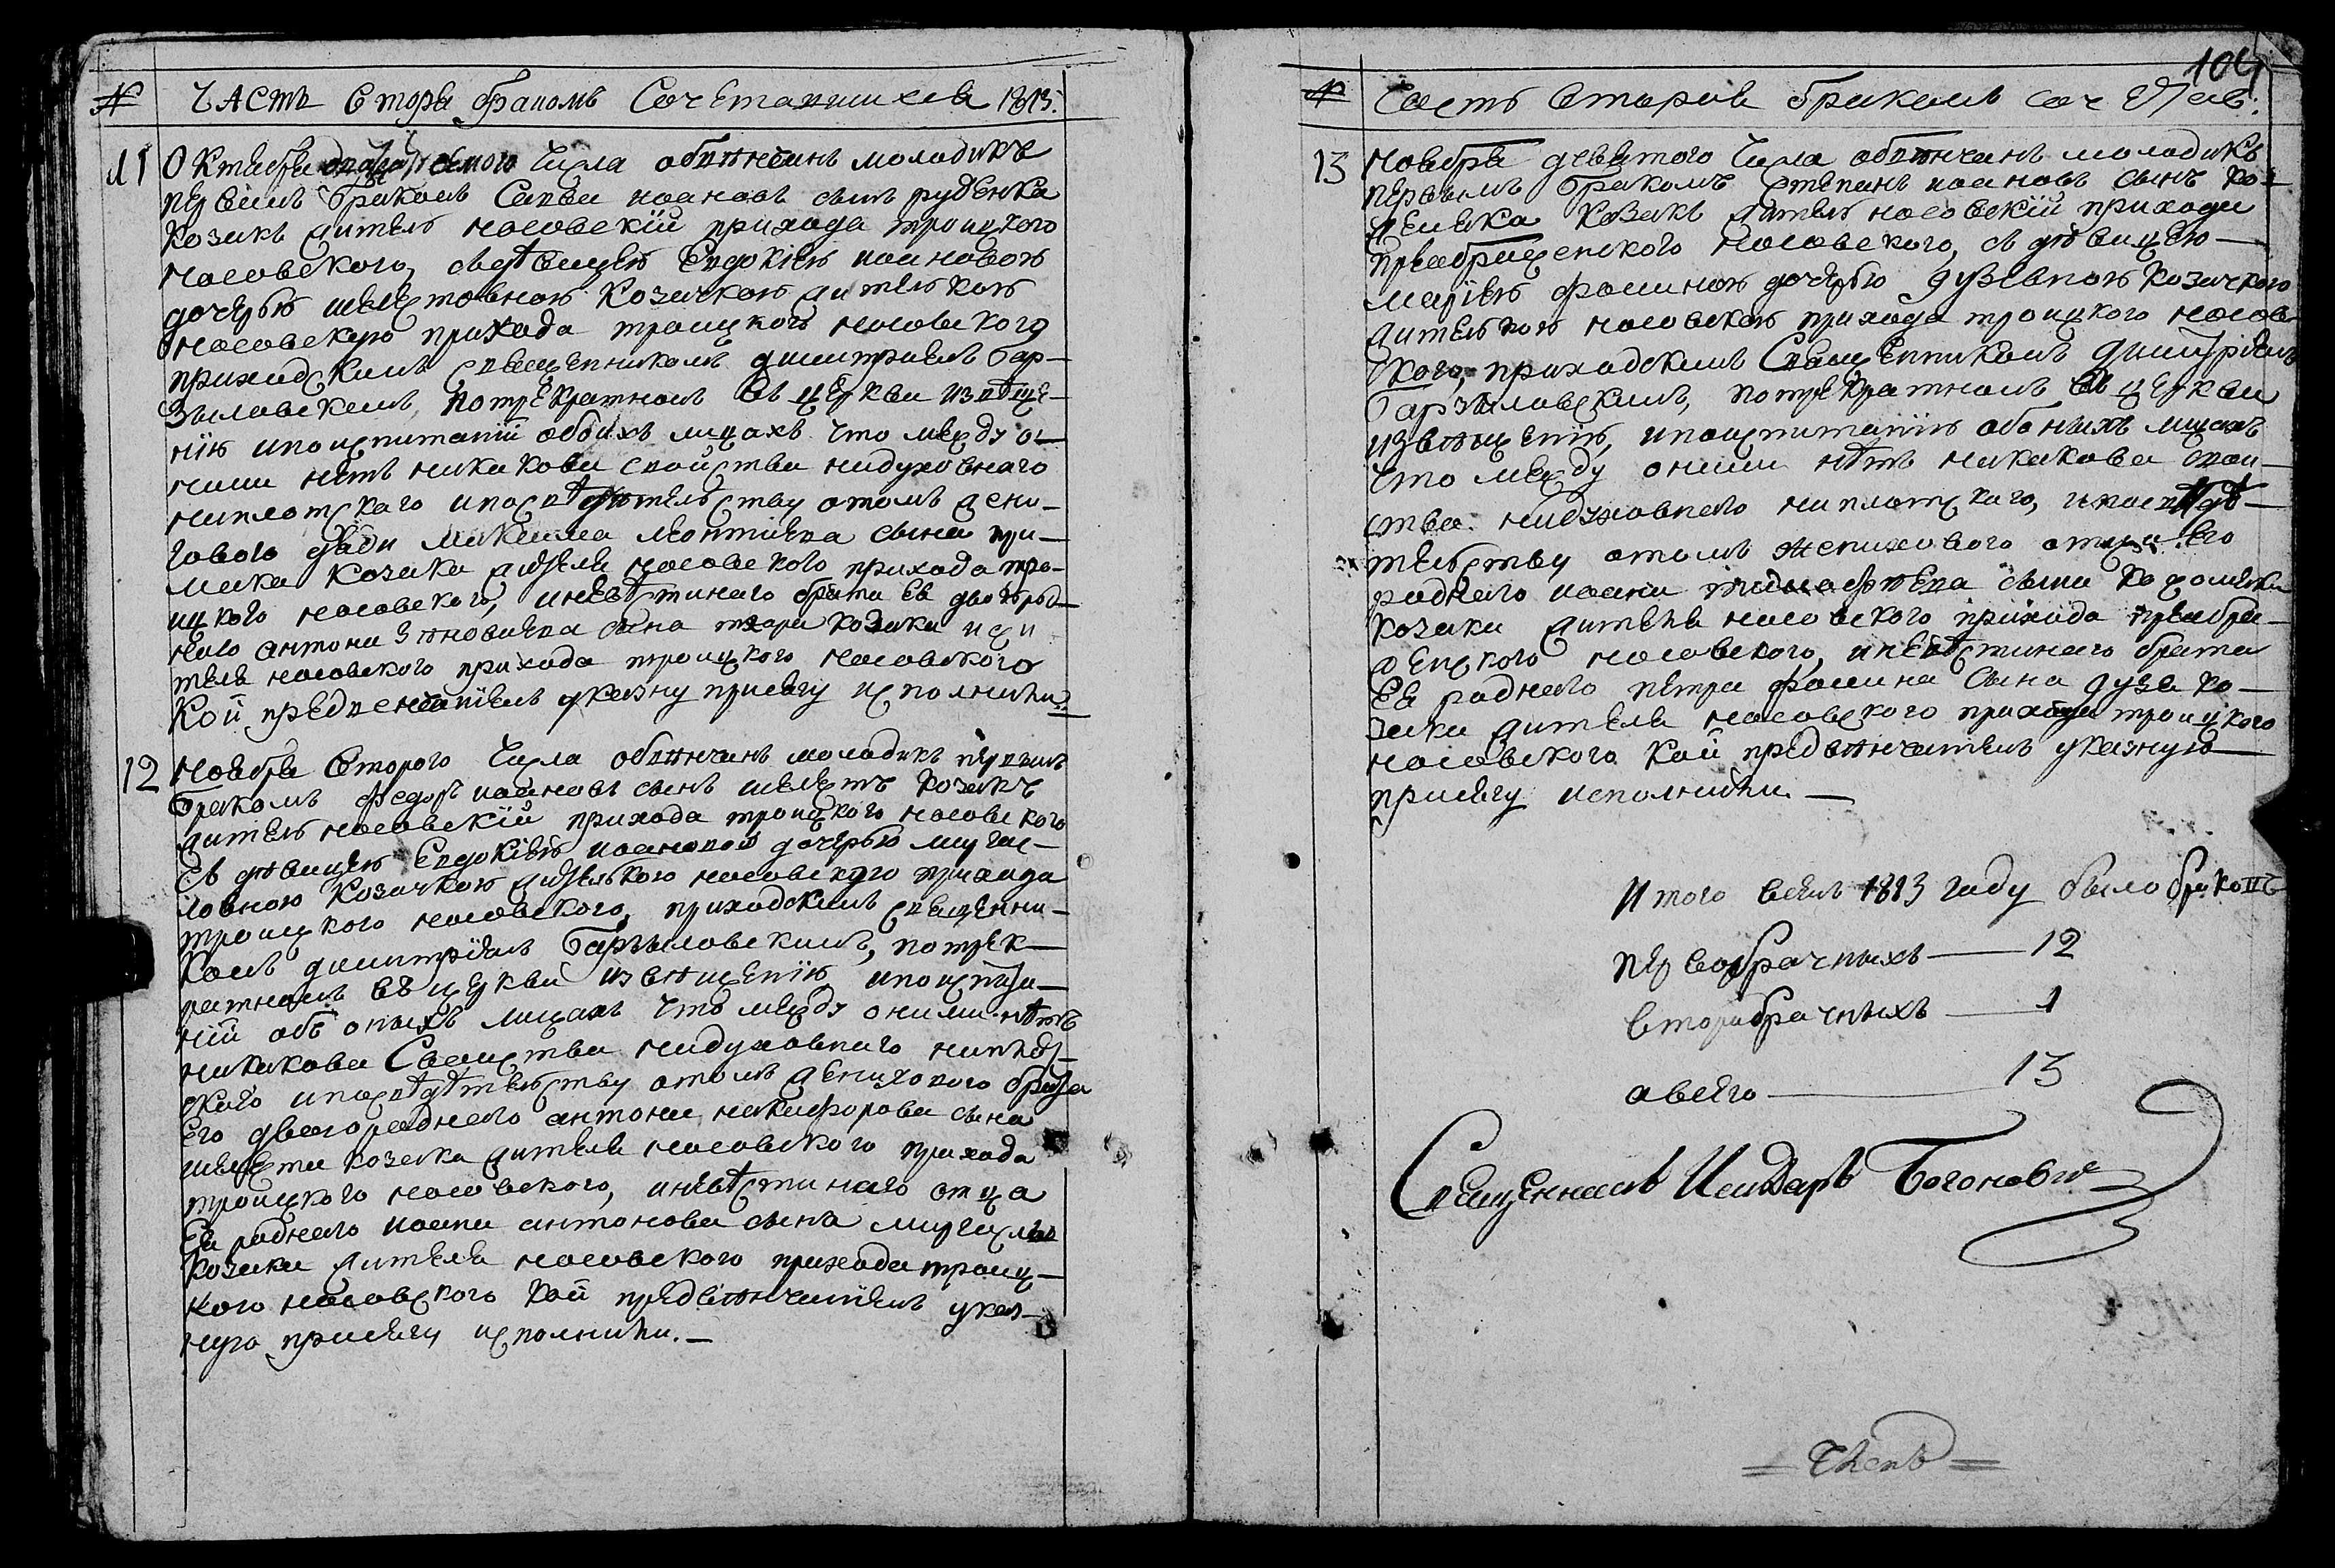 № ЧАСТЬ Втора бракомъ Сочетавшихся 1813.
11 Октября числа обвѣнчанъ молодикъ
первимъ бракомъ Савва иоановъ сынъ руденка
козакъ житель носовскій прихода троицкого
носовского, съдѣвицею Евдокіею иоановою
дочерью шелестовною козачкою жителькою
носовскую прихода троицкого носовского
приходскимъ священникомъ димитріемъ Бар-
зиловскимъ, потрекратномъ въ церкви извѣще-
нію ипоиспитаніи обоихъ лицахъ что между о-
ними нѣтъ никакова свойства нидуховнаго
ниплотскаго ипосвѣдѣтельству отомъ жени-
хового дяди сына при-
мака козака жителя носовского прихода тро-
ицкого носовского, иневѣстинаго брата Ея двоюрод-
наго антона сына козака жи
теля носовского прихода троицкого носовского
кои предвенчаніемъ указну присягу исполнили.
12 Ноября Второго Числа обвѣнчанъ молодикъ первимъ
бракомъ федоръ иоановъ сынъ шелестъ козакъ
житель носовскій прихода троицкого носовского
съ дѣвицею Евдокіею иоановою дочерью мугас-
ловною козачкою жителькою носовского прихода
троицкого носовского, приходскимъ священни-
комъ димитріемъ Барзиловскимъ, потрек-
ратномъ въ церкви извѣщенію ипоиспита-
ніи объ оныхъ лицахъ что между оними нѣтъ
никакова Своиства нидуховнаго ниплот-
скаго ипосвѣдѣтельству отомъ женихового брата
Его двоюроднаго антона никифорова сына
шелеста козака жителя носовского прихода
троицкого носовского, иневѣстинаго отца
Ея роднаго иоана антонова сына
козака жителя носовского прихода троиц-
кого носовского кои предвѣнчаніемъ указ-
ную присягу исполнили.—
104
№ Часть вторая бракомъ соч
13 Ноября девятого Числа обвѣнчанъ молодикъ
первымъ бракомъ степанъ иоановъ сынъ хо-
козакъ житель носовскій прихода
преображенского носовского, съ дѣвицею—
маріею фоминою дочерью дузевною козачкою
жителькою носовскою прихода троицкого носов-
ского, приходскимъ Священникомъ димитріемъ
Барзиловскимъ, потрекратномъ въ церкви
извѣщеніи, ипоиспитаніи обоныхъ лицахъ
что между оними нѣтъ никакова свои-
ства нидуховнаго ниплотскаго, ипосвѣдѣ-
тельству отомъ женихового отца его
роднаго иоана сына
козака жителя носовского прихода преобра-
женского носовского, иневѣстинаго брата
Ея роднаго петра фомина сына дуза ко-
зака жителя носовского прихода троицкого
носовского кои предвѣнчаніемъ указную
присягу исполнили.—
Итого всемъ 1813 году было браковъ
первобрачныхъ—12
вторабрачныхъ—1
авсего—13
Священникъ